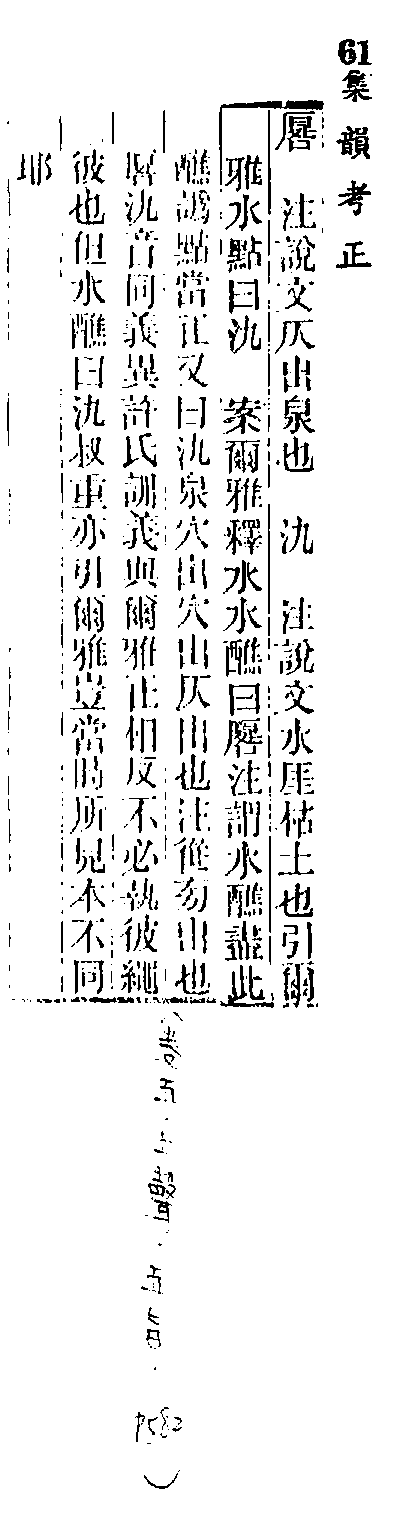 61集韻考正
厬　注說文仄出泉也　氿　注說文水厓枯土也引爾
雅水點曰氿　案爾雅釋水水醮曰厬注謂水醮盡此
醮譌點當正又曰氿泉穴出穴出仄出也注從旁出也
厬氿音同義異許氏訓義與爾雅正相反不必執彼繩
彼也但水醮曰氿叔重亦引爾雅豈當時所見本不同
耶
（卷五·上聲·五旨·P582）